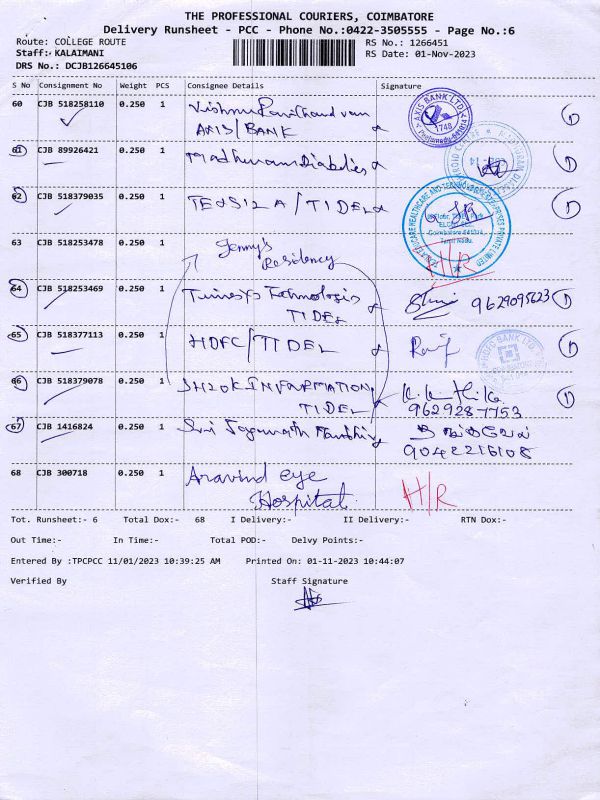 THE PROFESSIONAL COURIERS, COIMBATORE
Delivery Runsheet - PCC - Phone No.:0422-3505555 - Page No.:6
Route: COLLEGE ROUTE
RS No.: 1266451
Staff: KALAIMANI
RS Date: 01-Nov-2023
DRS No.: DCJB126645106
S No Consignment No Weight PCS Consignee Details Signature
60 CJB 518258110 0.250 1
AXIS/BANK
AXIS BANK LTD
1748
61 CJB 89926421 0.250 1 Madhuram Diabetes
62 CJB 518379035 0.250 1 TIDEL
63 CJB 518253478 0.250 1 Jenny's
Residency H/R
64 CJB 518253469 0.250 1 9629095623
TIDEL
65 CJB 518377113 0.250 1 HDFC/TIDEL
HDFC BANK LTD
66 CJB 518379078 0.250 1 INFORMATION
TIDEL 9629287753
67 CJB 1416824 0.250 1 Sri
9042216108
68 CJB 300718 0.250 1 Aravind eye
Hospital H/R
Tot. Runsheet:- 6 Total Dox:- 68 I Delivery:- II Delivery:- RTN Dox:-
Out Time:- In Time:- Total POD:- Delvy Points:-
Entered By :TPCPCC 11/01/2023 10:39:25 AM Printed On: 01-11-2023 10:44:07
Verified By Staff Signature